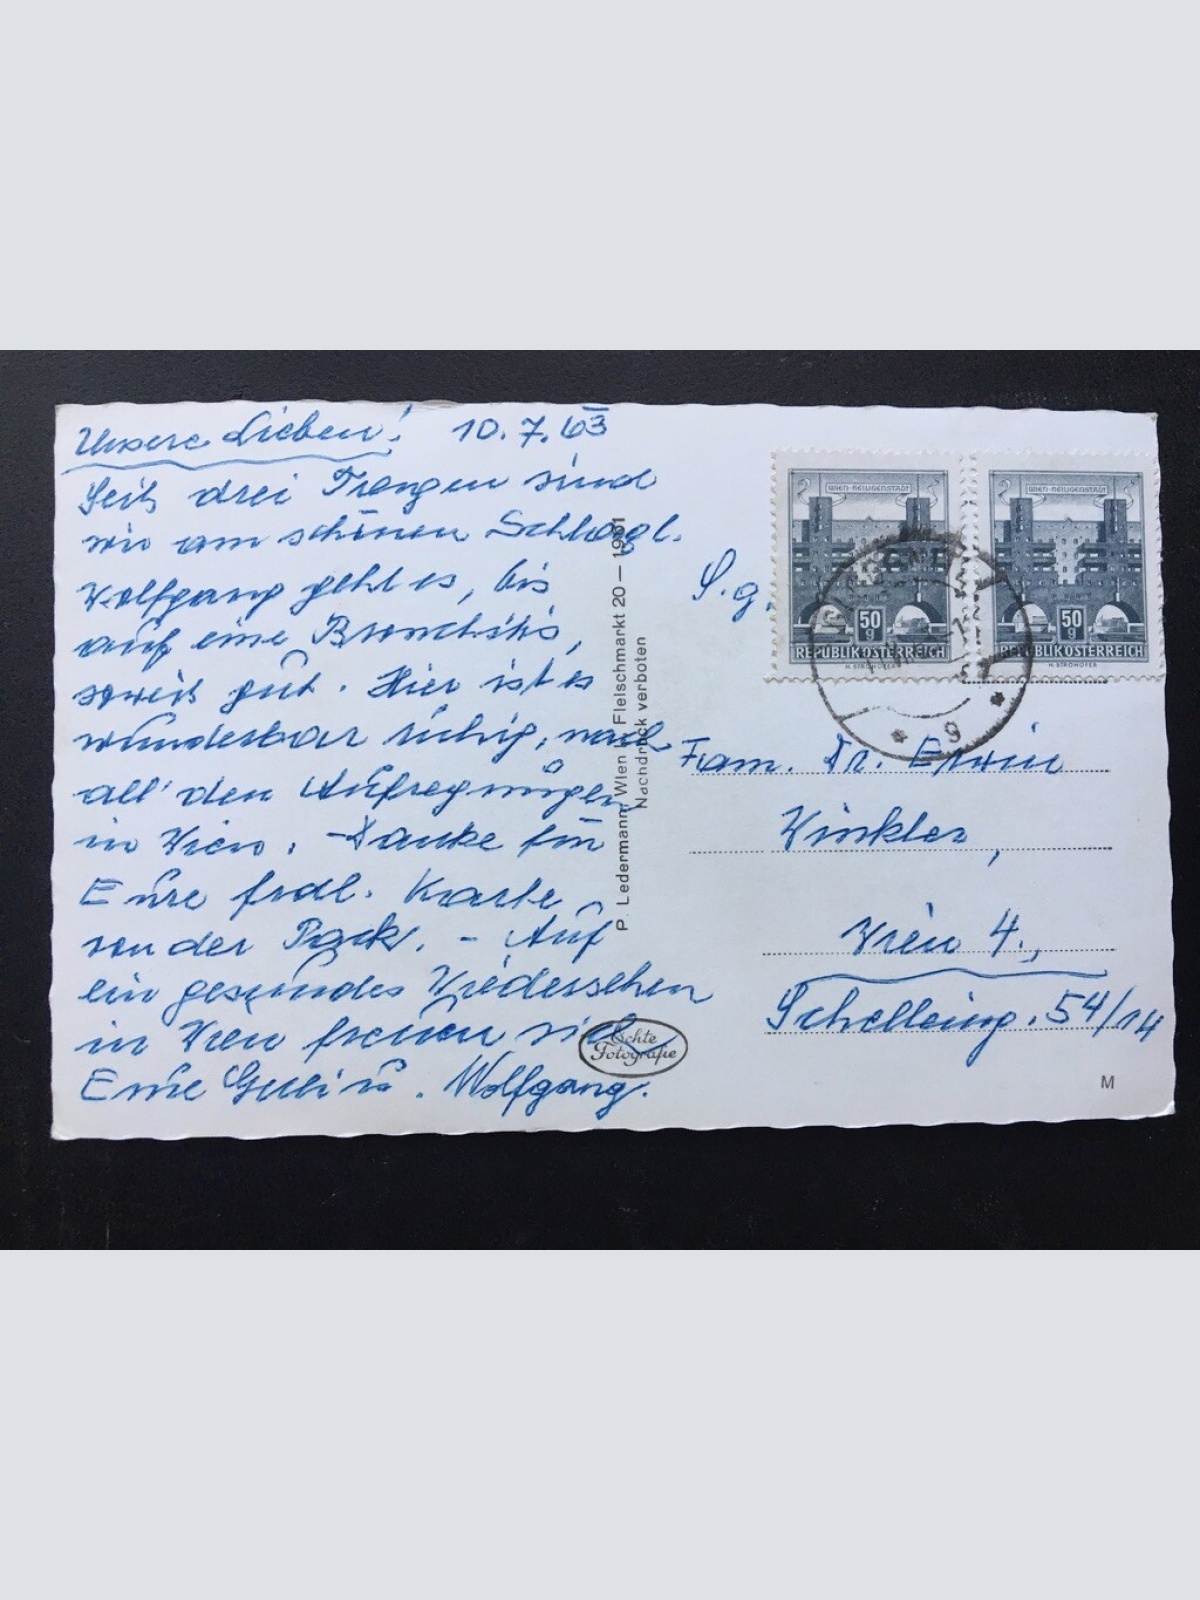 Unsere Lieben! 10.7.63
Seit drei Tagen sind
wir am schönen Schlögl.
Wolfgang geht es, bis
auf eine Bronchitis,
soweit gut. Hier ist es
wunderbar ruhig, nach
all' den Aufregungen
in Wien. - Danke für
Eure frdl. Karte
von der Pack. - Auf
ein gesundes Wiedersehen
in Wien freuen sich
Eure . Wolfgang.
P. Ledermann, Wien I, Fleischmarkt 20 — 1961
Nachdruck verboten
Echte
Fotografie
WIEN-HEILIGENSTADT
50
g
REPUBLIK ÖSTERREICH
H. STROHOFER
WIEN-HEILIGENSTADT
50
g
REPUBLIK ÖSTERREICH
H. STROHOFER
S. g.
Fam. Dr. Erwin
Winkler,
Wien 4.,
Schelleing. 54/14
M